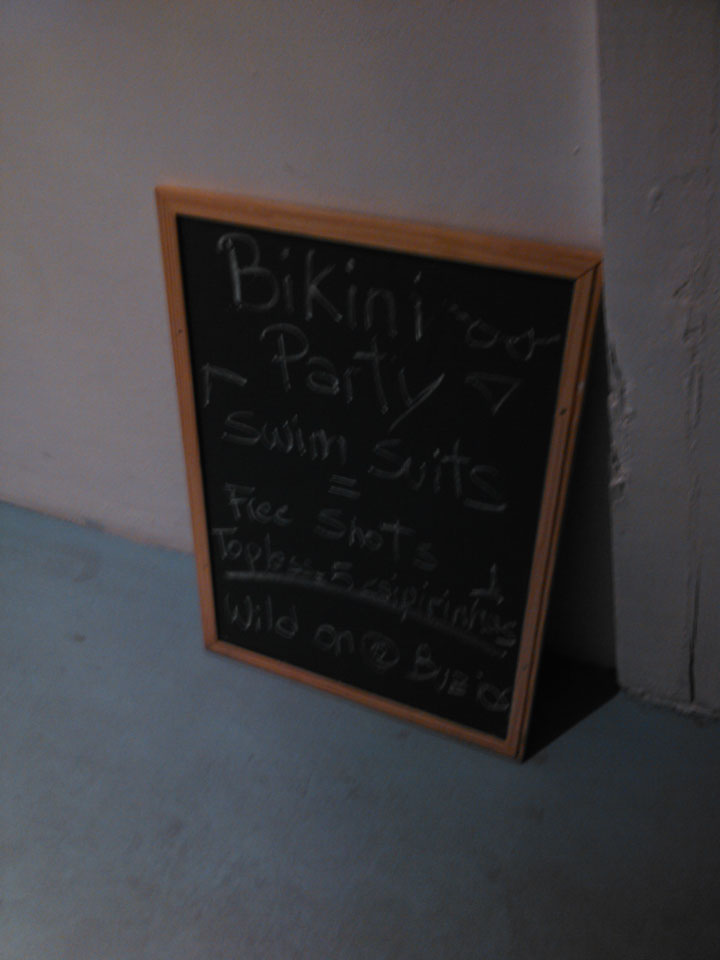 Bikini
Party
Swim Suits
=
Free Shots
Topless = 5 caipirinhas
Wild on @